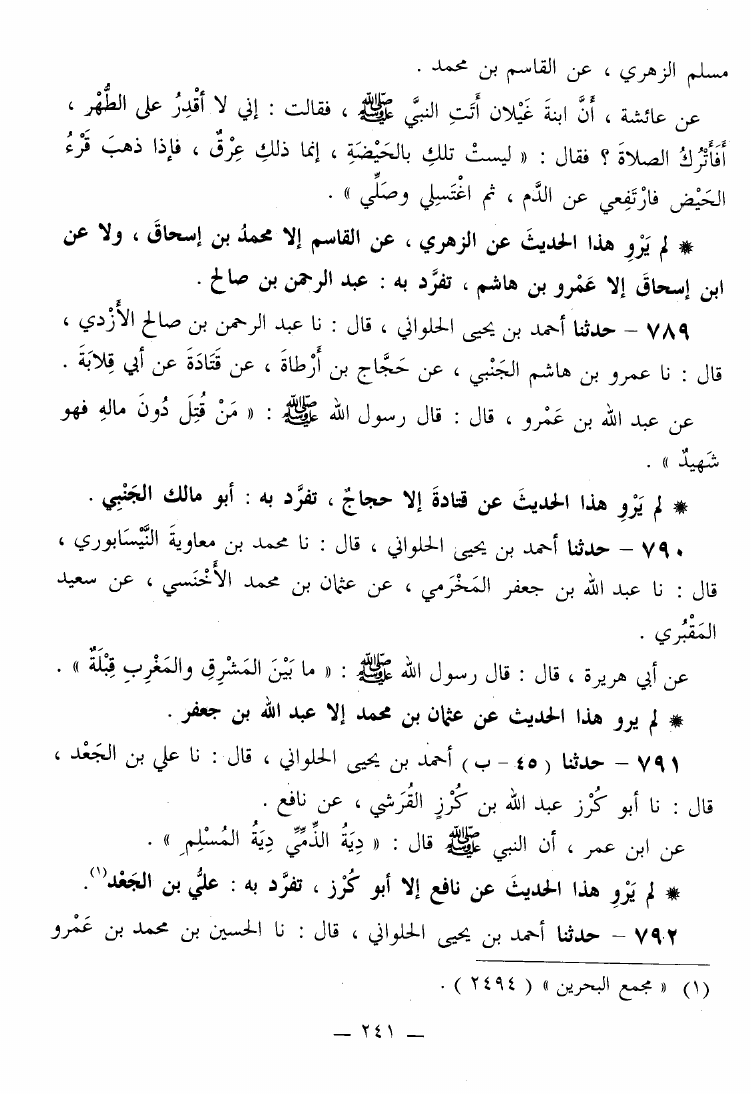 مسلم الزهري ، عن القاسم بن محمد .
عن عائشة ، أَنَّ ابنةَ غَيْلان أَتَتِ النبيَّ ﷺ ، فقالت : إني لا أَقْدِرُ على الطُّهْر ،
أَفَأَتْرُكُ الصلاةَ ؟ فقال : « ليستْ تلكِ بالحَيْضَةِ ، إنما ذلكِ عِرْقٌ ، فإذا ذهبَ قَرْءُ
الحَيْض فارْتَفعي عن الدَّم ، ثم اغْتَسلِي وصَلِّي » .
* لم يَرْوِ هذا الحديثَ عن الزهري ، عن القاسم إلا محمدُ بن إسحاقَ ، ولا عن
ابن إسحاقَ إلا عَمْرو بن هاشم ، تفرَّد به : عبد الرحمن بن صالح .
٧٨٩ – حدثنا أحمد بن يحيى الحلواني ، قال : نا عبد الرحمن بن صالح الأَزْدي ،
قال : نا عمرو بن هاشم الجَنْبي ، عن حَجَّاج بن أَرْطاةَ ، عن قَتَادَةَ عن أبي قِلابَةَ .
عن عبد الله بن عَمْرو ، قال : قال رسول الله ﷺ : « مَنْ قُتِلَ دُونَ مالِهِ فهو
شَهيدٌ » .
* لم يَرْوِ هذا الحديثَ عن قتادةَ إلا حجاجٌ ، تفرَّد به : أبو مالك الجَنْبِي .
٧٩٠ – حدثنا أحمد بن يحيى الحلواني ، قال : نا محمد بن معاويةَ النَّيْسَابوري ،
قال : نا عبد الله بن جعفر المَخْرَمي ، عن عثمان بن محمد الأَخْنَسي ، عن سعيد
المَقْبُري .
عن أبي هريرة ، قال : قال رسول الله ﷺ : « ما بَيْنَ المَشْرِقِ والمَغْرِبِ قِبْلَةٌ » .
* لم يرو هذا الحديث عن عثمان بن محمد إلا عبد الله بن جعفر .
٧٩١ – حدثنا ( ٤٥ – ب ) أحمد بن يحيى الحلواني ، قال : نا علي بن الجَعْد ،
قال : نا أبو كُرْز عبد الله بن كُرْزٍ القُرَشي ، عن نافع .
عن ابن عمر ، أن النبي ﷺ قال : « دِيَةُ الذِّمِّيِّ دِيَةُ المُسْلِمِ » .
* لم يَرْوِ هذا الحديثَ عن نافع إلا أبو كُرْز ، تفرَّد به : عليُّ بن الجَعْد(١).
٧٩٢ – حدثنا أحمد بن يحيى الحلواني ، قال : نا الحسين بن محمد بن عَمْرو
(١) « مجمع البحرين » ( ٢٤٩٤ ) .
— ٢٤١ —